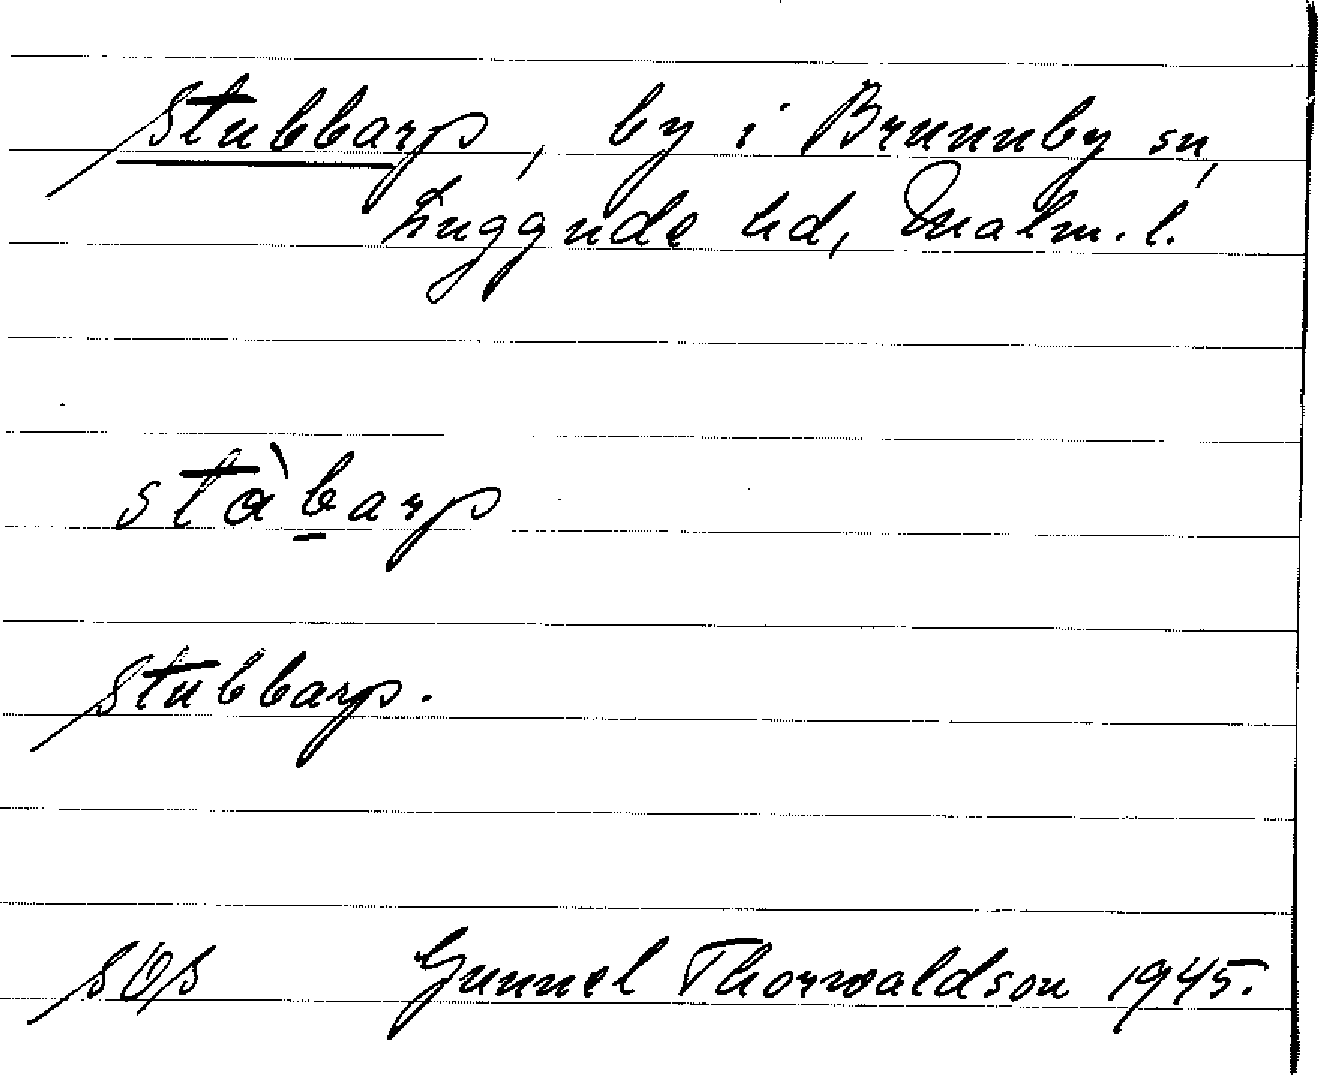 Stubbarp, by i Brunnby sn,
Luggude hd, Malm. l.
stàb̲arp
Stubbarp.
SOS Gunnel Thorwaldson 1945.